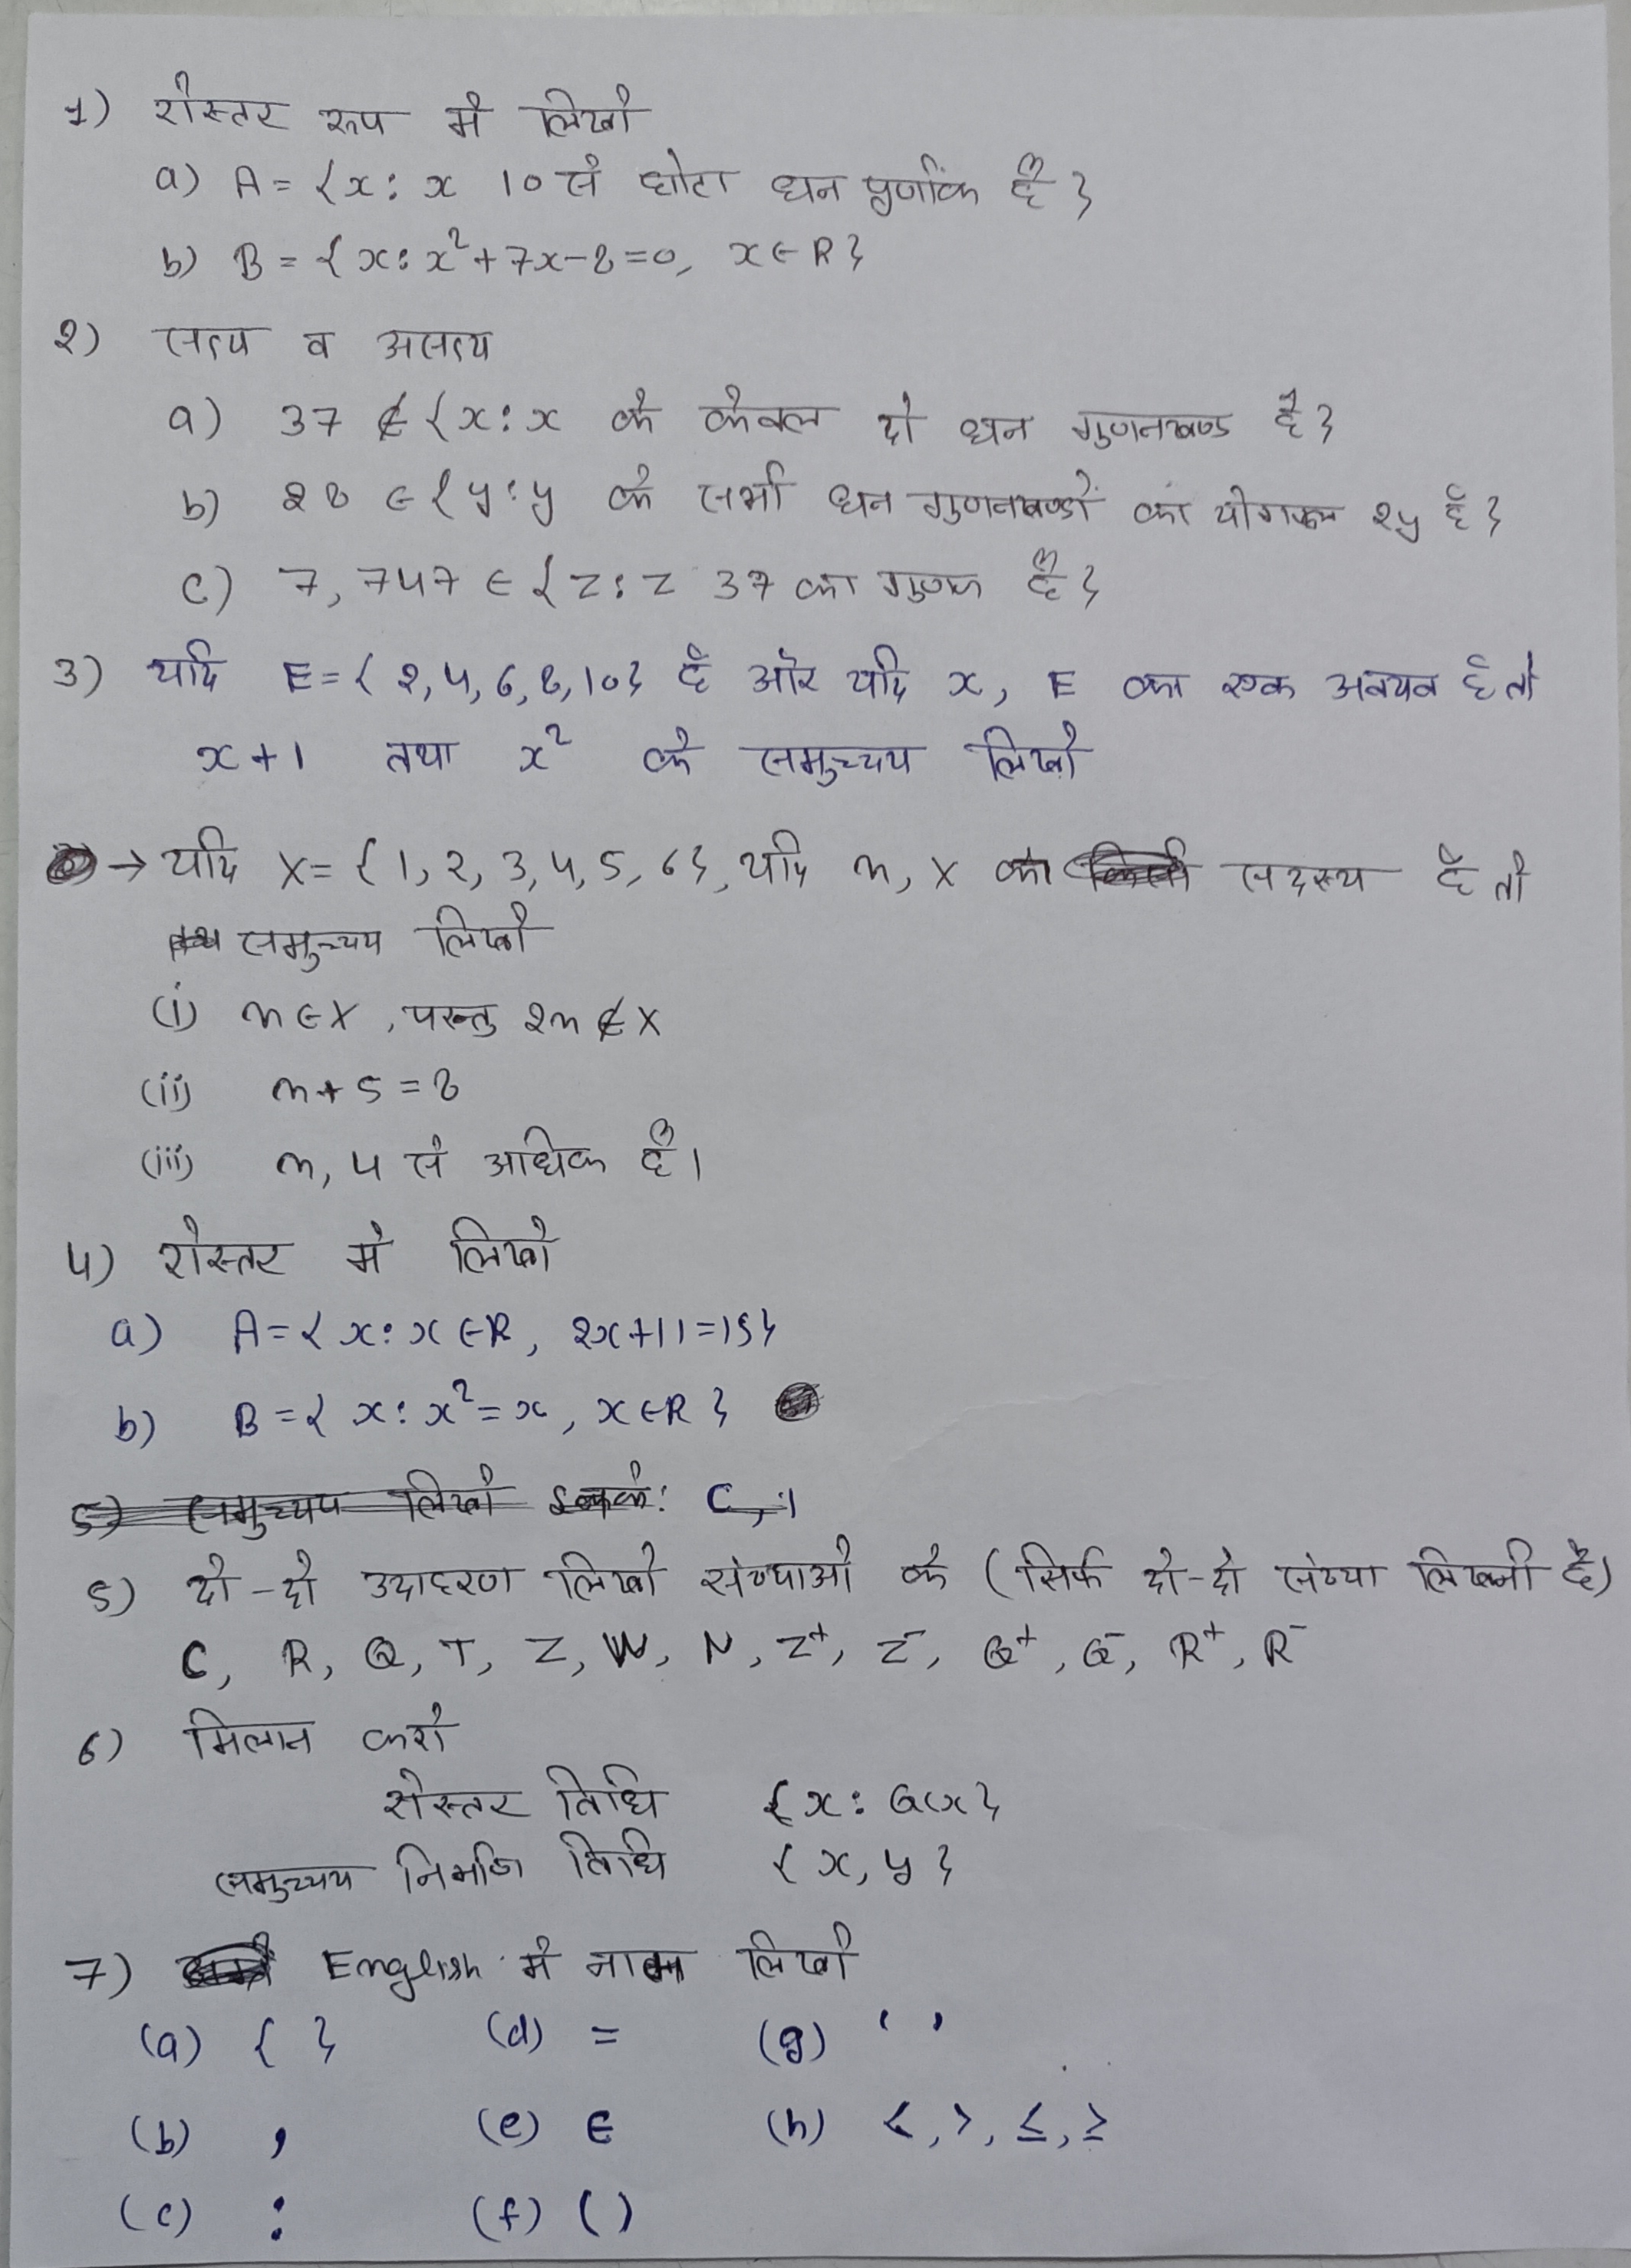 1) रोस्टर रूप में लिखो
a) A = {x : x 10 से छोटा धन पूर्णांक है}
b) B = {x : x² + 7x - 8 = 0, x ∈ R}
2) सत्य व असत्य
a) 37 ∉ {x : x के केवल दो धन गुणनखण्ड है}
b) 28 ∈ {y : y के सभी धन गुणनखण्डों का योगफल 2y है}
c) 7,747 ∈ {z : z 37 का गुणक है}
3) यदि E = {2, 4, 6, 8, 10} है और यदि x, E का एक अवयव है तो
x + 1 तथा x² के समुच्चय लिखो
→ यदि X = {1, 2, 3, 4, 5, 6}, यदि n, X का सदस्य है तो
समुच्चय लिखो
(i) n ∈ X, परन्तु 2n ∉ X
(ii) n + 5 = 8
(iii) n, 4 से अधिक है।
4) रोस्टर में लिखो
a) A = {x : x ∈ R, 2x + 11 = 15}
b) B = {x : x² = x, x ∈ R}
5) समुच्चय लिखो इनके: C,
5) दो-दो उदाहरण लिखो संख्याओ के (सिर्फ दो-दो संख्या लिखनी है)
C, R, Q, T, Z, W, N, Z⁺, Z⁻, Q⁺, Q⁻, R⁺, R⁻
6) मिलान करो
रोस्टर विधि {x : Q(x}
समुच्चय निर्माण विधि {x, y}
7) English में नाम लिखो
(a) { } (d) = (g) ‘ ’
(b) , (e) ∈ (h) <, >, ≤, ≥
(c) : (f) ( )